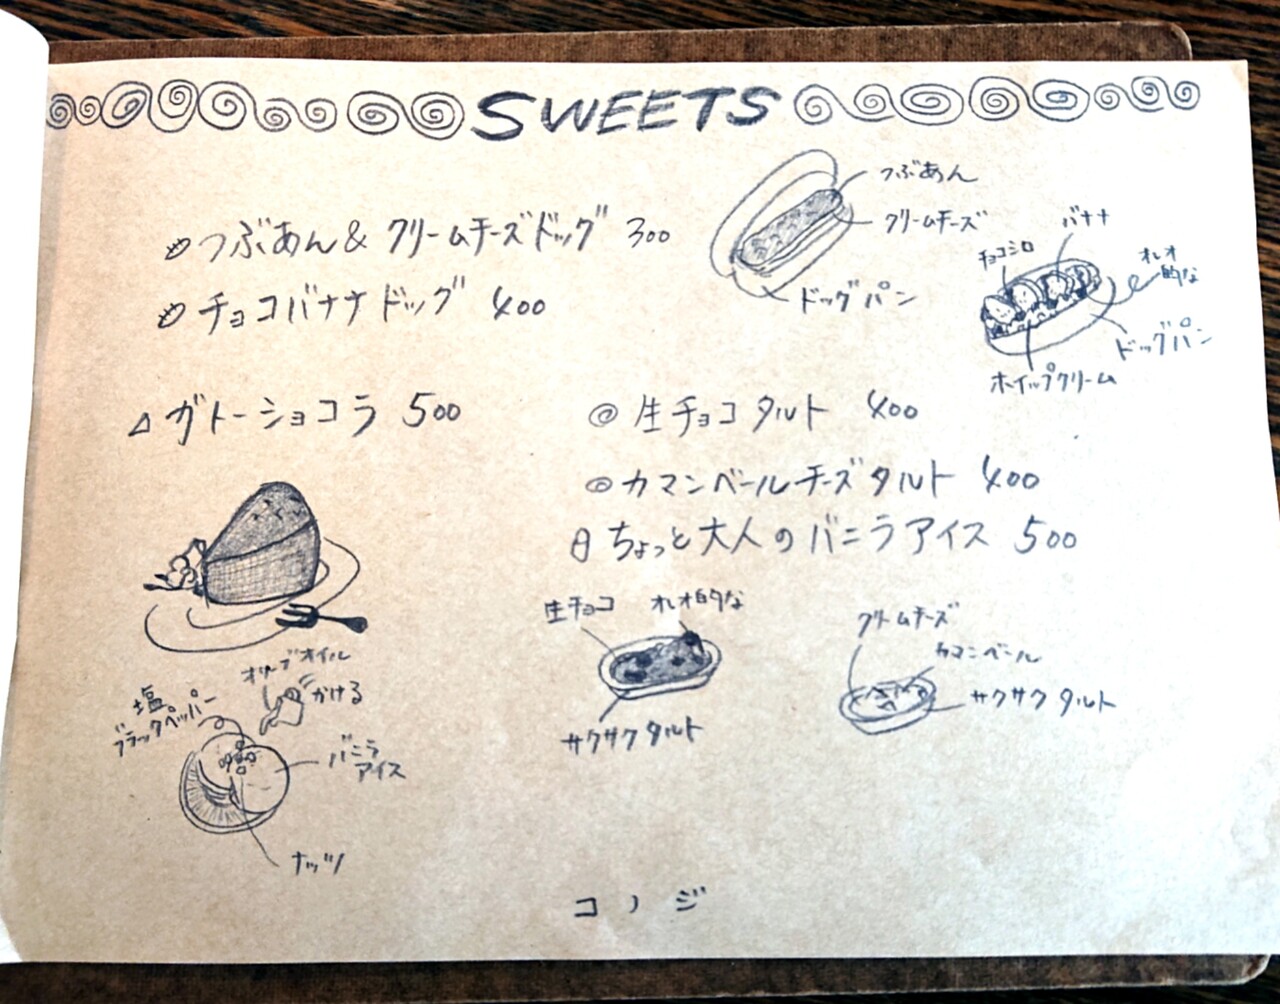 SWEETS
つぶあん& クリームチーズドッグ 300
チョコバナナドッグ 400
つぶあん
クリームチーズ
ドッグパン
バナナ
チョコシロ
オレオ
的な
ドッグパン
ホイップクリーム
ガトーショコラ 500
生チョコタルト 400
カマンベールチーズタルト 400
ちょっと大人のバニラアイス 500
生チョコ
オレオ的な
サクサクタルト
クリームチーズ
カマンベール
サクサクタルト
オリーブオイル
かける
塩。
ブラックペッパー
バニラ
アイス
ナッツ
コノジ